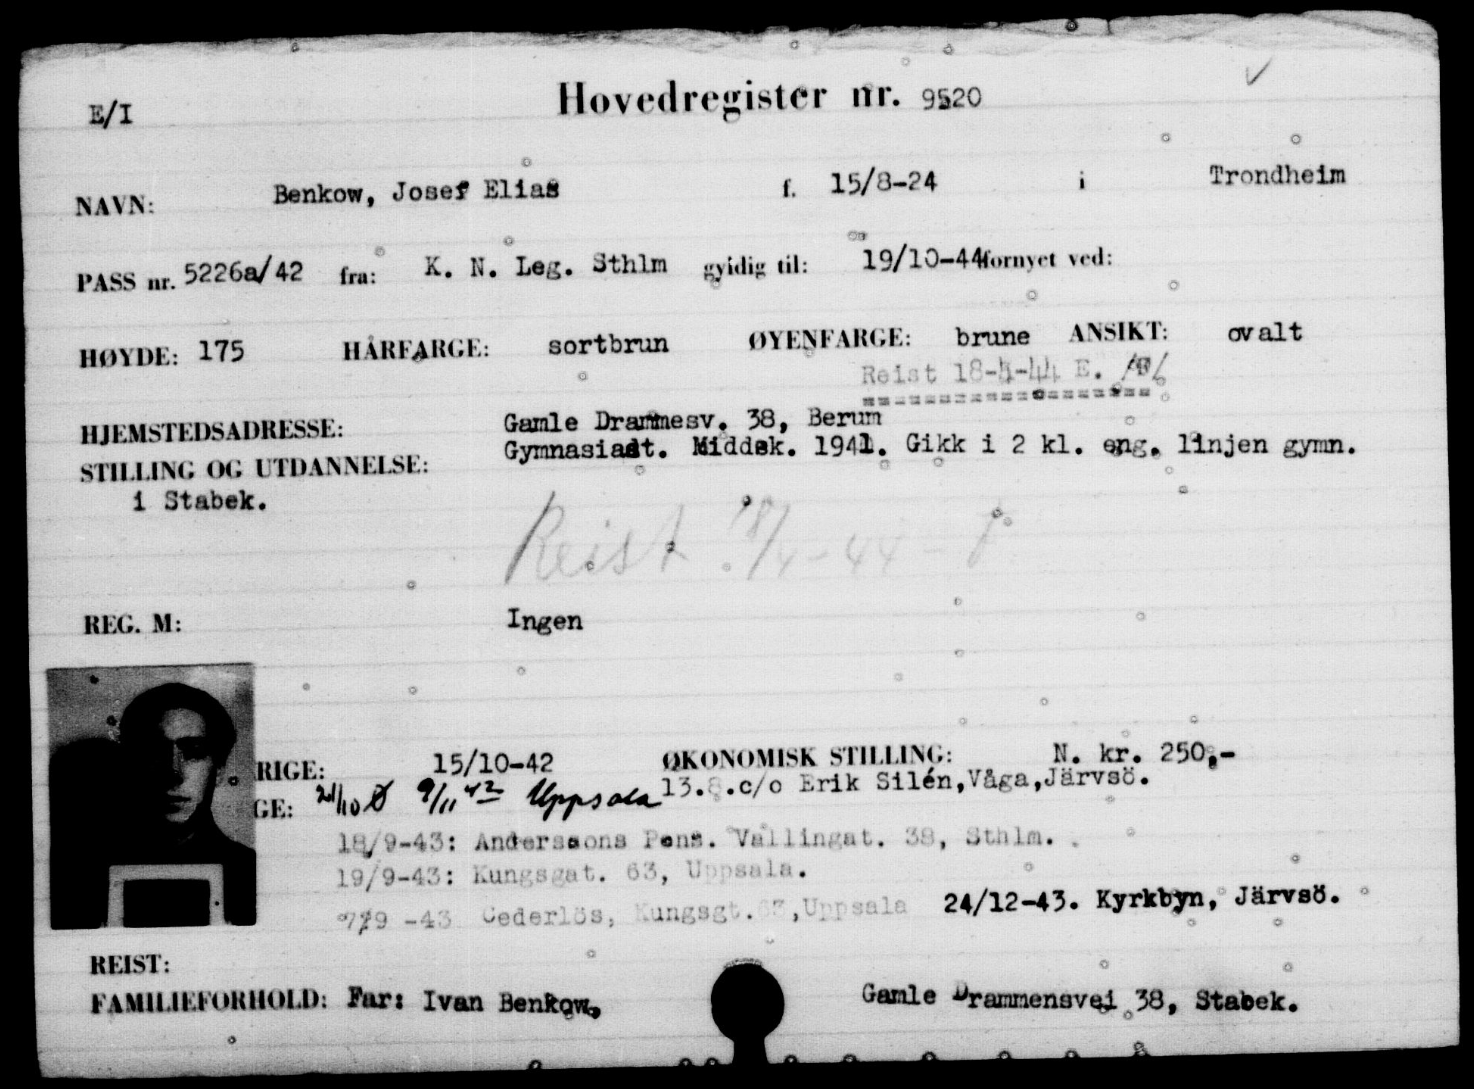 E/I
Hovedregister nr. 9520
NAVN: Benkow, Josef Elias f. 15/8-24 i Trondheim
PASS nr. 5226a/42 fra: K. N. Leg. Sthlm gyldig til: 19/10-44 fornyet ved:
HØYDE: 175 HÅRFARGE: sortbrun ØYENFARGE: brune ANSIKT: ovalt
Reist 18-4-44 E.
HJEMSTEDSADRESSE: Gamle Drammesv. 38, Berum
STILLING OG UTDANNELSE: Gymnasiast. Middsk. 1941. Gikk i 2 kl. eng. linjen gymn.
i Stabek.
Reist 18/4-44 -
REG. M: Ingen
RIGE: 15/10-42 ØKONOMISK STILLING: N. kr. 250,-
GE: 21/10 Ø 9/11 42 Uppsala 13.8.c/o Erik Silén, Våga, Järvsö.
18/9-43: Anderssons Pens. Vallingat. 38, Sthlm.
19/9-43: Kungsgat. 63, Uppsala.
-43 Cederlös, Kungsgt. 63, Uppsala 24/12-43. Kyrkbyn, Järvsö.
REIST:
FAMILIEFORHOLD: Far: Ivan Benkow, Gamle Drammensvei 38, Stabek.